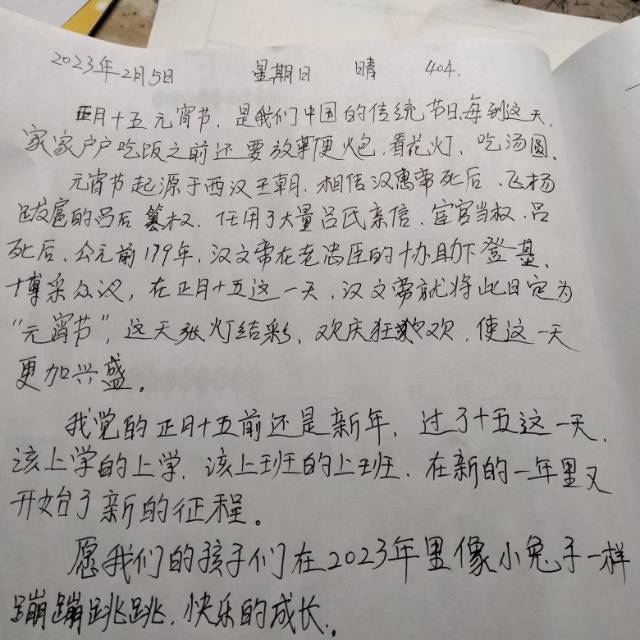 2023年2月5日 星期日 晴 404.
正月十五元宵节,是我们中国的传统节日,每到这天,
家家户户吃饭之前还要放鞭炮,看花灯,吃汤圆.
元宵节起源于西汉王朝.相传汉惠帝死后,飞杨
跋扈的吕后篡权.任用了大量吕氏亲信,宦官当权.吕
死后,公元前179年,汉文帝在老忠臣的协助下登基、
博采众议,在正月十五这一天,汉文帝就将此日定为
“元宵节”,这天张灯结彩,欢庆狂欢,使这一天
更加兴盛。
我觉的正月十五前还是新年,过了十五这一天,
该上学的上学,该上班的上班.在新的一年里又
开始了新的征程。
愿我们的孩子们在2023年里像小兔子一样
蹦蹦跳跳,快乐的成长.